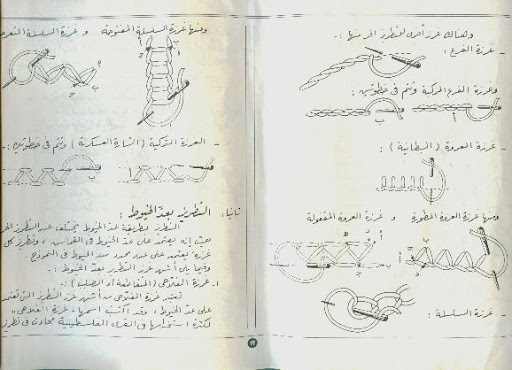 وهناك غرز أخرى للتطريز الحر منها :-
- غرزة الفرع :
وغرزة الفرع المركبة وتتم في خطوتين :-
أ
ب
- غرزة العروة ( البطانية ) :
ومنها غرزة العروة المطورة و غرزة العروة المقفولة
- غرزة السلسلة :
ومنها غرزة السلسلة المفتوحة و غرزة السلسلة
- الغرزة التركية ( الشارة العسكرية ) وتتم في خطوتين :-
ثانيا: التطريز بعدّ الخيوط :
التطريز بطريقة عدّ الخيوط يختلف عن التطريز
حيث إنه يعتمد على عدّ الخيوط في القماش ، وتطريز كل
غرزة يعتمد على عدد محدد من الخيوط في النموذج
وفيما يلي أشهر غرز التطريز بعدّ الخيوط :-
١- غرزة الفلاحي ( المتقاطعة أو الصليب ) :
تعتبر غرزة الفلاحي من أشهر غرز التطريز التي تعتمد
على عدّ الخيوط ، وقد اكتسبت اسمها ، غرزة الفلاحي ،
لكثرة استخدامها في القرى الفلسطينية